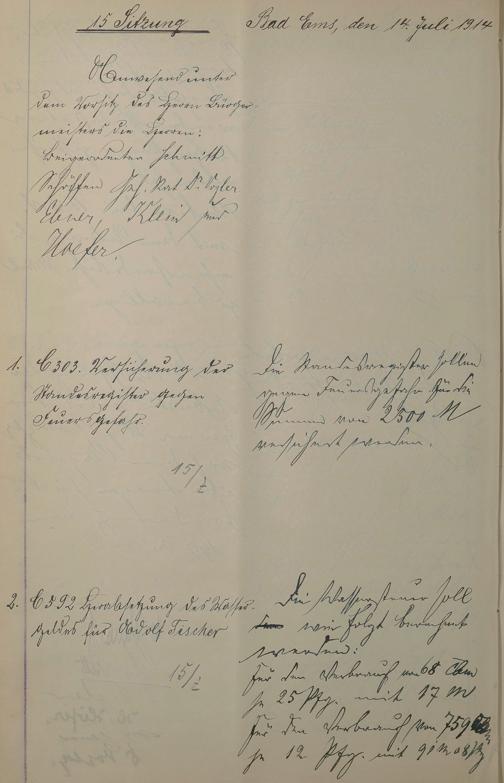 15 Sitzung
Bad Ems, den 14. Juli 1914
Anwesend unter
dem Vorsitz des Herrn Bürger-
meisters die Herren:
Beigeordneter Schmitt
Schöffen Geh. Rat Dr. Vogler
Ebner, Klein und
Hoefer.
1.
C 303. Versicherung der
Standesregister gegen
Feuersgefahr.
15/7
Die Standesregister sollen
gegen Feuersgefahr für die
Summe von 2500 M
versichert werden.
2.
C 592 Herabsetzung des Wasser-
geldes für Adolf Fischer
15/7
Die Wassersteuer soll
wie folgt berechnet
werden:
Für den Verbrauch von 68 Cbm
je 25 Pfg. mit 17 M
Für den Verbrauch von 759
je 12 Pfg. mit 91 M 08